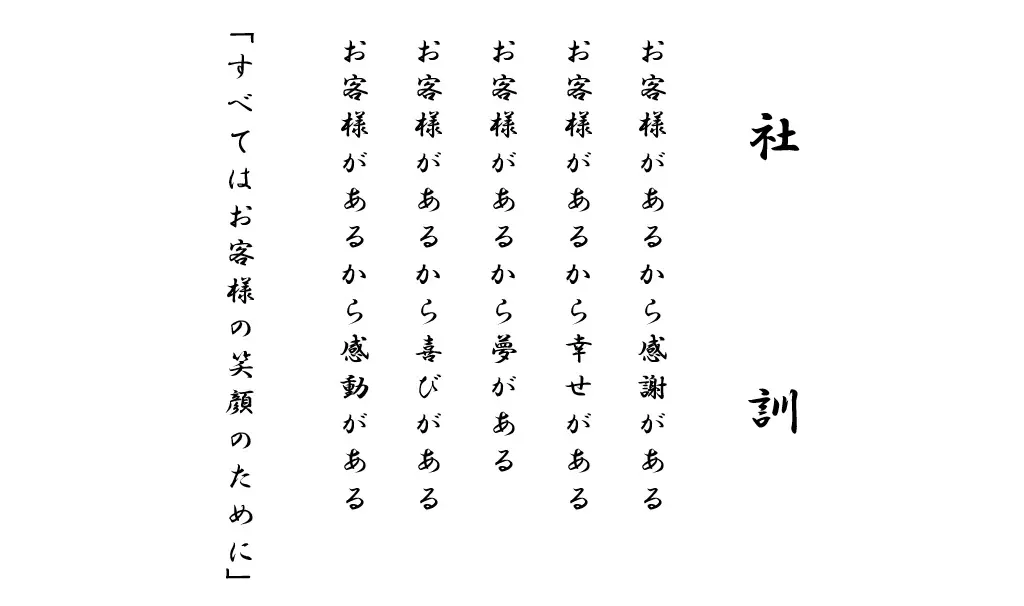 社訓
お客様があるから感謝がある
お客様があるから幸せがある
お客様があるから夢がある
お客様があるから喜びがある
お客様があるから感動がある
「すべてはお客様の笑顔のために」